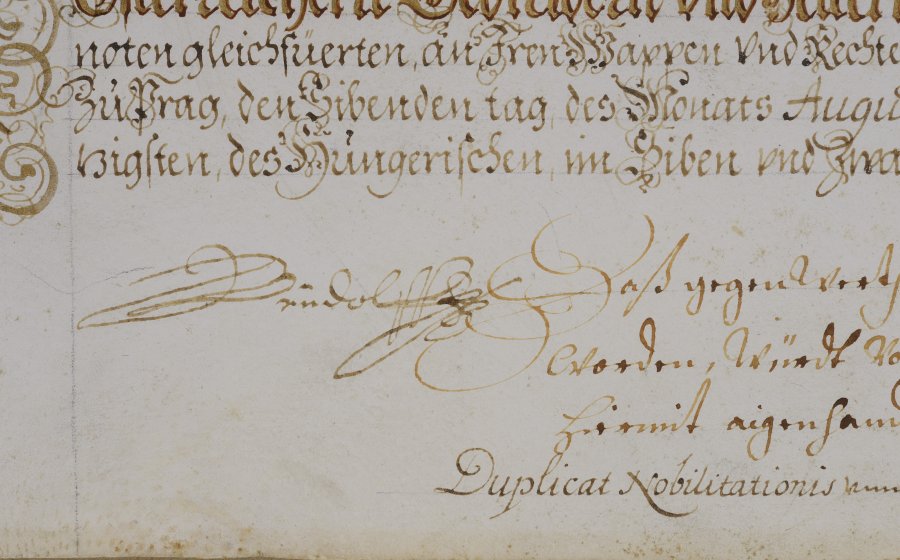 noten gleichfüerten, an Iren Wappen vnd Rechte
Zu Prag, den Sibenden tag, des Monats Augu
tzigsten, des Hungerischen, im Siben vnd Zwa
Rudolff
Daß gegenwert
worden, würdt
hiermit aigenhan
Duplicat Nobilitationis